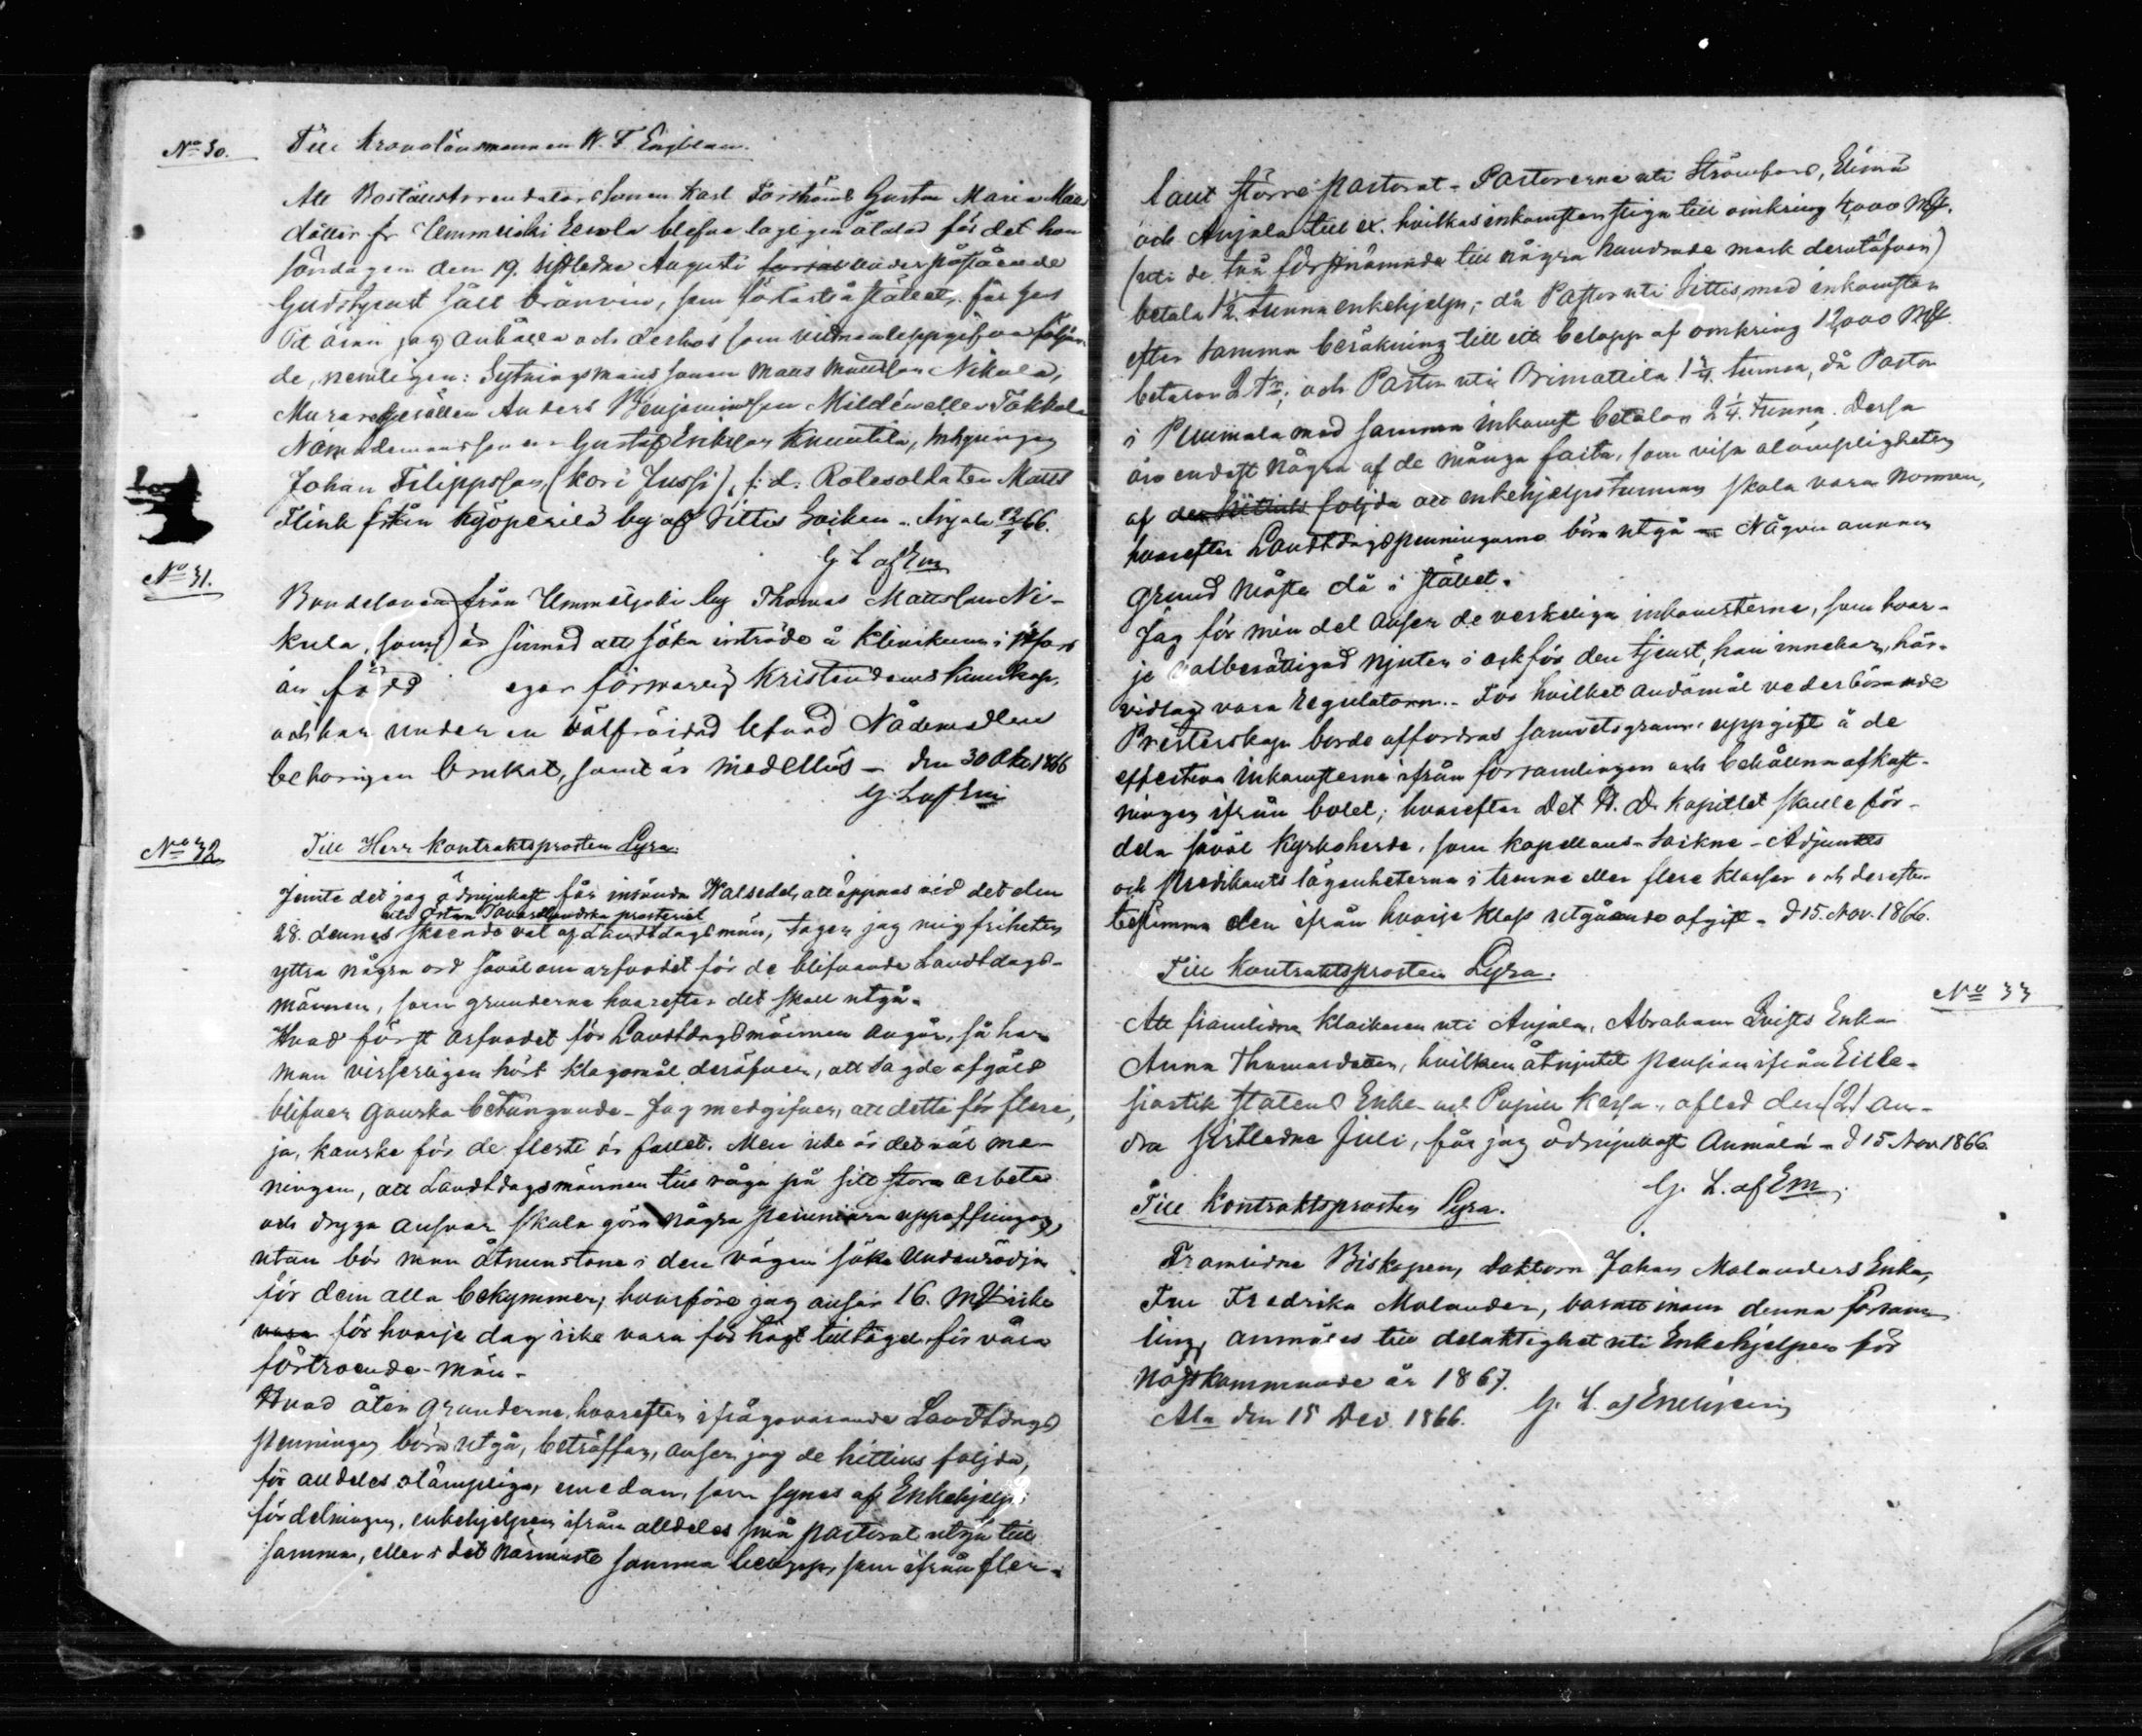 No 30. Till Kronolänsmannen W. F. Engblom.
Att Boställsarrendators sonen Karl Forströms Gustava Maria Mats
dotter fr Ummeljoki Eerola blefve lagligen åtalad för det hon
söndagen den 19. sistledne Augusti under påstående
Gudstjenst sålt bränvin, som förtärts å stället, får jag
 jag anhålla och derhos som vittnen uppgifva följan-
de, nemligen: Sytningsmans sonen Mats Mattsson Nikula,
Muraregesällen Anders Benjaminsson Mildén eller Tokkola
Nämndemanssonen Gustaf Eriksson Knuutila, Inhysingen
Johan Filippsson, (Kori Jussi), f: d. Rotesoldaten Matts
Flink från Kjöperilä by af Sittis Socken. Anjala 12/9 66.
G L af Em
No 31.
Bondesonen från Ummeljoki by Thomas Mattsson Ni-
kula, som) är sinnad att söka inträde å Klinikum i Hfors
är född eger försvarlig Kristendoms kunskap,
och har under en välfräjdad lefnad Nådemedlen
behörigen brukat, samt är medellös – den 30 Okt 1866
G. L af Em
No 32 Till Herr Kontraktsprosten Lyra.
Jemte det jag ödmjukast får insända Valsedel, att öppnas vid det den
uti Östra Tavastländska prosteriet
28. dennes skeende val af Landtdagsmän, tager jag mig friheten
yttra några ord såväl om arfvodet för de blifvande Landtdags-
männen, som grunderna hvarefter det skall utgå.
Hvad först arfvodet för Landtdagsmännen angår, så har
man visserligen hört klagomål deröfver, att sagde afgäld
blifver ganska betungande – Jag medgifver, att detta för flere,
ja, kanske för de fleste är fallet. Men icke är det väl me-
ningen, att Landtdagsmännen till råga på sitt stora arbete
och dryga ansvar skola göra några pecuniära uppoffringar,
utan bör man åtminstone i den vägen söka undanrödja
för dem alla bekymmer, hvarföre jag anser 16. mk icke
vara för hvarje dag icke vara för högt tilltaget för våra
förtroende-män –
Hvad åter grunderna, hvarefter ifrågavarande Landtdags
penningar böra utgå, beträffar, anser jag de hittills följda,
för alldeles olämpliga, emedan, som synes af Enkehjelps
fördelningen, enkehjelpen ifrån alldeles små pastorat utgå till
samma, eller i det närmaste samma belopp, som ifrån fler-
faldt större pastorat – Pastorerna uti Strömfors, Elimä
och Anjala till ex. hvilkas inkomster stiga till omkring 4,000 mk.
(uti de två förstnämnda till några hundrade mark derutöfver)
betala 1½ tunna enkehjelp; – då Pastor uti Sittis, med inkomster
efter samma beräkning till ett belopp af omkring 12,000 mk
betalar 2 t:r; och Pastor uti Orimattila 1¾. tunna, då Pastor
i Puumala med samma inkomst betalar 2¼. tunna. Dessa
äro endast några af de många facta, som visa olämpligheten
af följda att enkehjelpstunnan skola vara normen,
hvarefter Landtdagspenningarna böra utgå – Någon annan
grund måste då i stället.
Jag för min del anser de verkeliga inkomsterna, som hvar-
je valberättigad njuter i och för den tjenst, han innehar, här-
vidlag vara regulatorn. – För hvilket ändamål vederbörande
Presterskap borde affordras samvetsgrann uppgift å de
effectiva inkomsterna ifrån församlingen och behållna afkast-
ningen ifrån bolet; hvarefter Det H. D. Kapitlet skulle för-
dela såväl Kyrkoherde, som Kapellans- Sockne- Adjunkts
och Predikants lägenheterna i trenne eller flere Klasser och derefter
bestämma den ifrån hvarje klass utgående afgift – d 15. Nov. 1866.
Till Kontraktsprosten Lyra.
No 33
Att framlidne Klockaren uti Anjala, Abraham Qvists Enka
Anna Thomasdotter, hvilken åtnjutit pension ifrån Eccle-
siastik statens Enke- och Pupill Kassa, afled den (2) an-
dra sistledne Juli, får jag ödmjukast anmäla – d 15 Nov 1866.
G. L. af Em.
Till Kontraktsprosten Lyra.
Framlidne Biskopen, Doktorn Johan Molanders Enka,
Fru Fredrika Molander, bosatt inom denna försam
ling, anmäles till delaktighet uti Enkehjelpen för
nästkommande år 1867.
Ala den 15 Dec. 1866. G. L. af Enehjelm